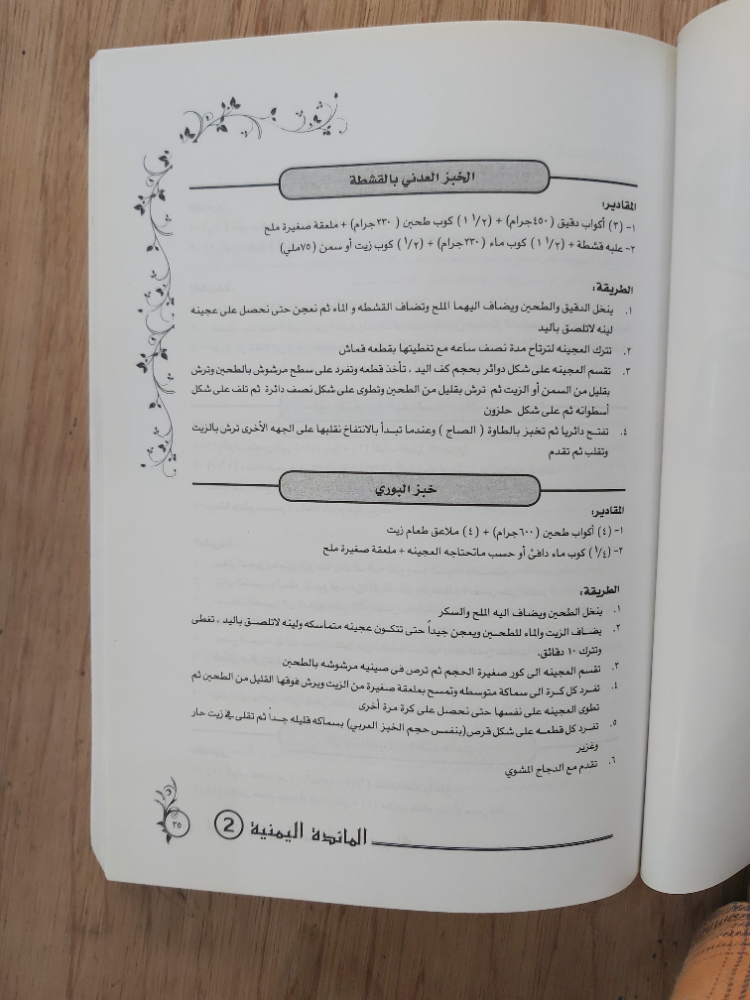 الخبز العدني بالقشطة
المقادير:
١- (٣) أكواب دقيق (٤٥٠جرام) + (١/٢ ١) كوب طحين (٢٣٠جرام) + ملعقة صغيرة ملح
٢- علبه قشطة + (١/٢ ١) كوب ماء (٢٣٠جرام) + (١/٢) كوب زيت أو سمن (٧٥ملي)
الطريقة:
١. ينخل الدقيق والطحين ويضاف اليهما الملح وتضاف القشطه و الماء ثم نعجن حتى نحصل على عجينه
لينه لاتلصق باليد
٢. تترك العجينه لترتاح مدة نصف ساعه مع تغطيتها بقطعه قماش
٣. تقسم العجينه على شكل دوائر بحجم كف اليد . تأخذ قطعه وتفرد على سطح مرشوش بالطحين وترش
بقليل من السمن أو الزيت ثم ترش بقليل من الطحين وتطوى على شكل نصف دائرة ثم تلف على شكل
أسطوانه ثم على شكل حلزون
٤. تفتح دائريا ثم تخبز بالطاوة ( الصاج ) وعندما تبدأ بالانتفاخ نقلبها على الجهه الأخرى ترش بالزيت
وتقلب ثم تقدم
خبز البوري
المقادير:
١- (٤) أكواب طحين (٦٠٠جرام) + (٤) ملاعق طعام زيت
٢- (١/٤) كوب ماء دافئ أو حسب ماتحتاجه العجينه + ملعقة صغيرة ملح
الطريقة:
١. ينخل الطحين ويضاف اليه الملح والسكر
٢. يضاف الزيت والماء للطحين ويعجن جيداً حتى تتكون عجينه متماسكه ولينه لاتلصق باليد . تغطى
وتترك ١٠ دقائق.
٣. تقسم العجينه الى كور صغيرة الحجم ثم ترص في صينيه مرشوشه بالطحين
٤. تفرد كل كرة الى سماكة متوسطه وتمسح بملعقة صغيرة من الزيت ويرش فوقها القليل من الطحين ثم
تطوى العجينه على نفسها حتى نحصل على كرة مرة أخرى
٥. تفرد كل قطعه على شكل قرص(بنفس حجم الخبز العربي) بسماكه قليله جداً ثم تقلى في زيت حار
وغزير
٦. تقدم مع الدجاج المشوي
المائدة اليمنية 2
٢٥